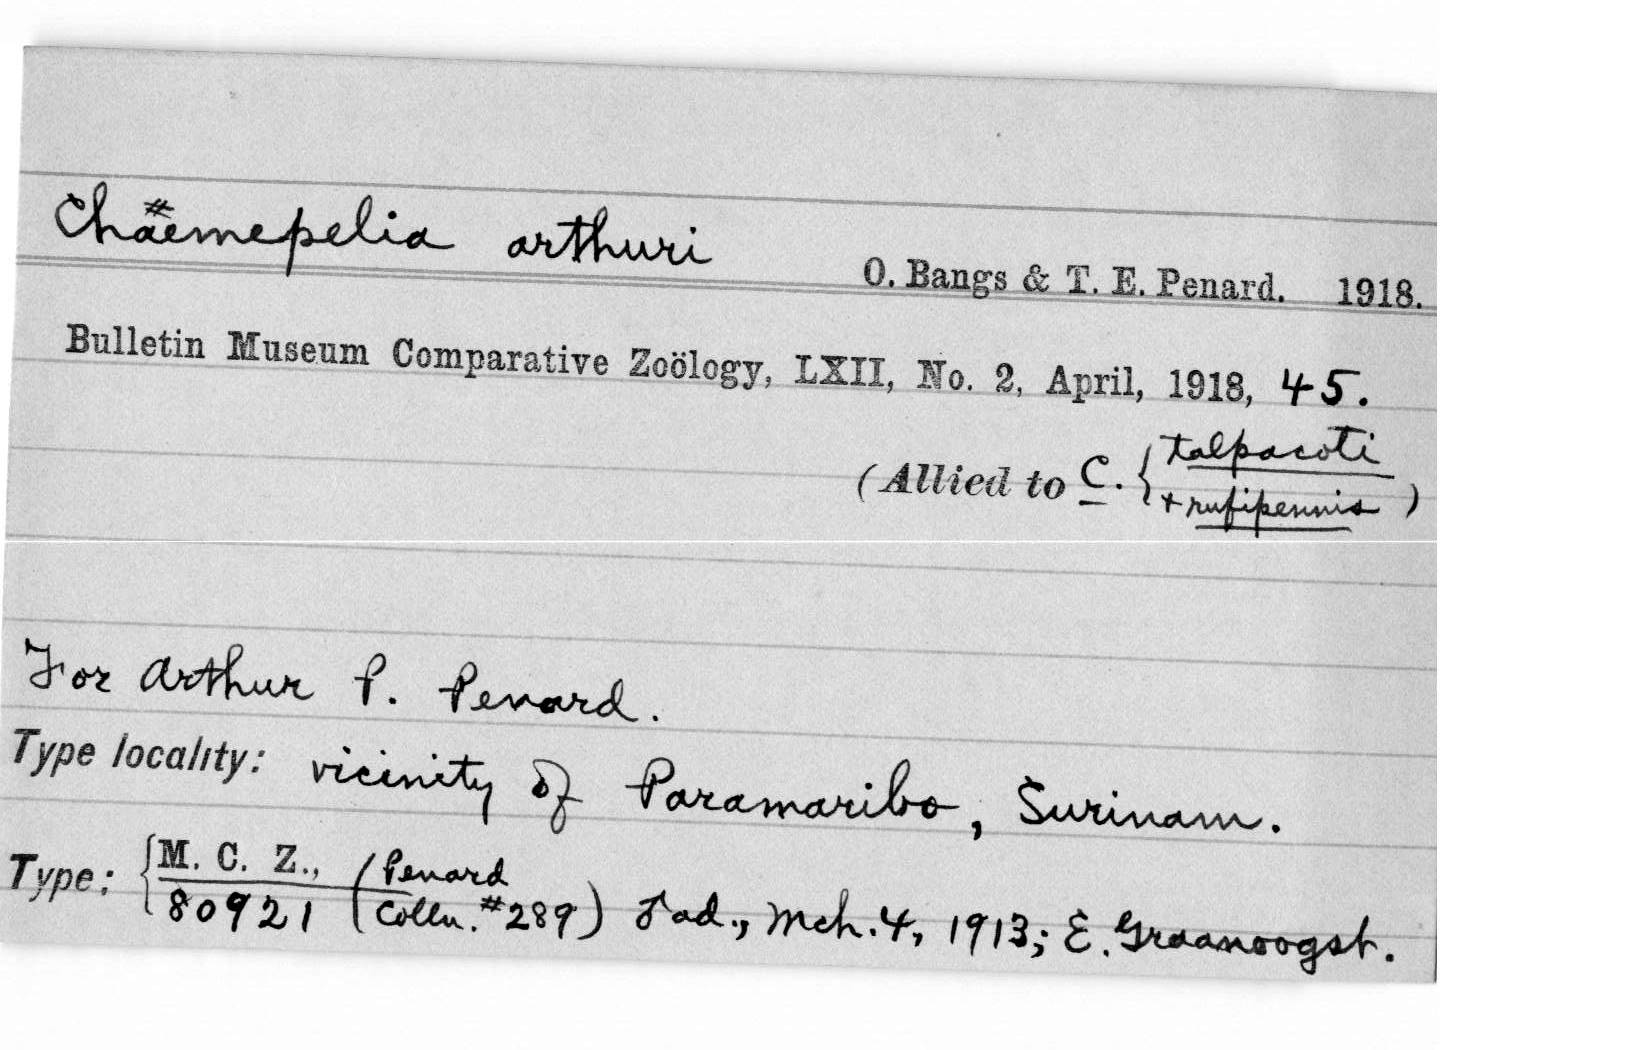 Chaemepelia arthuri
#
O. Bangs & T. E. Penard. 1918.
Bulletin Museum Comparative Zoölogy, LXII, No. 2, April, 1918, 45.
(Allied to C. { talpacoti
+ rufipennis )
For Arthur P. Penard.
Type locality: vicinity of Paramaribo, Surinam.
Type: { M. C. Z., (Penard
80921 Colln. #289) ♂ ad., Mch. 4, 1913; E. Graanoogst.